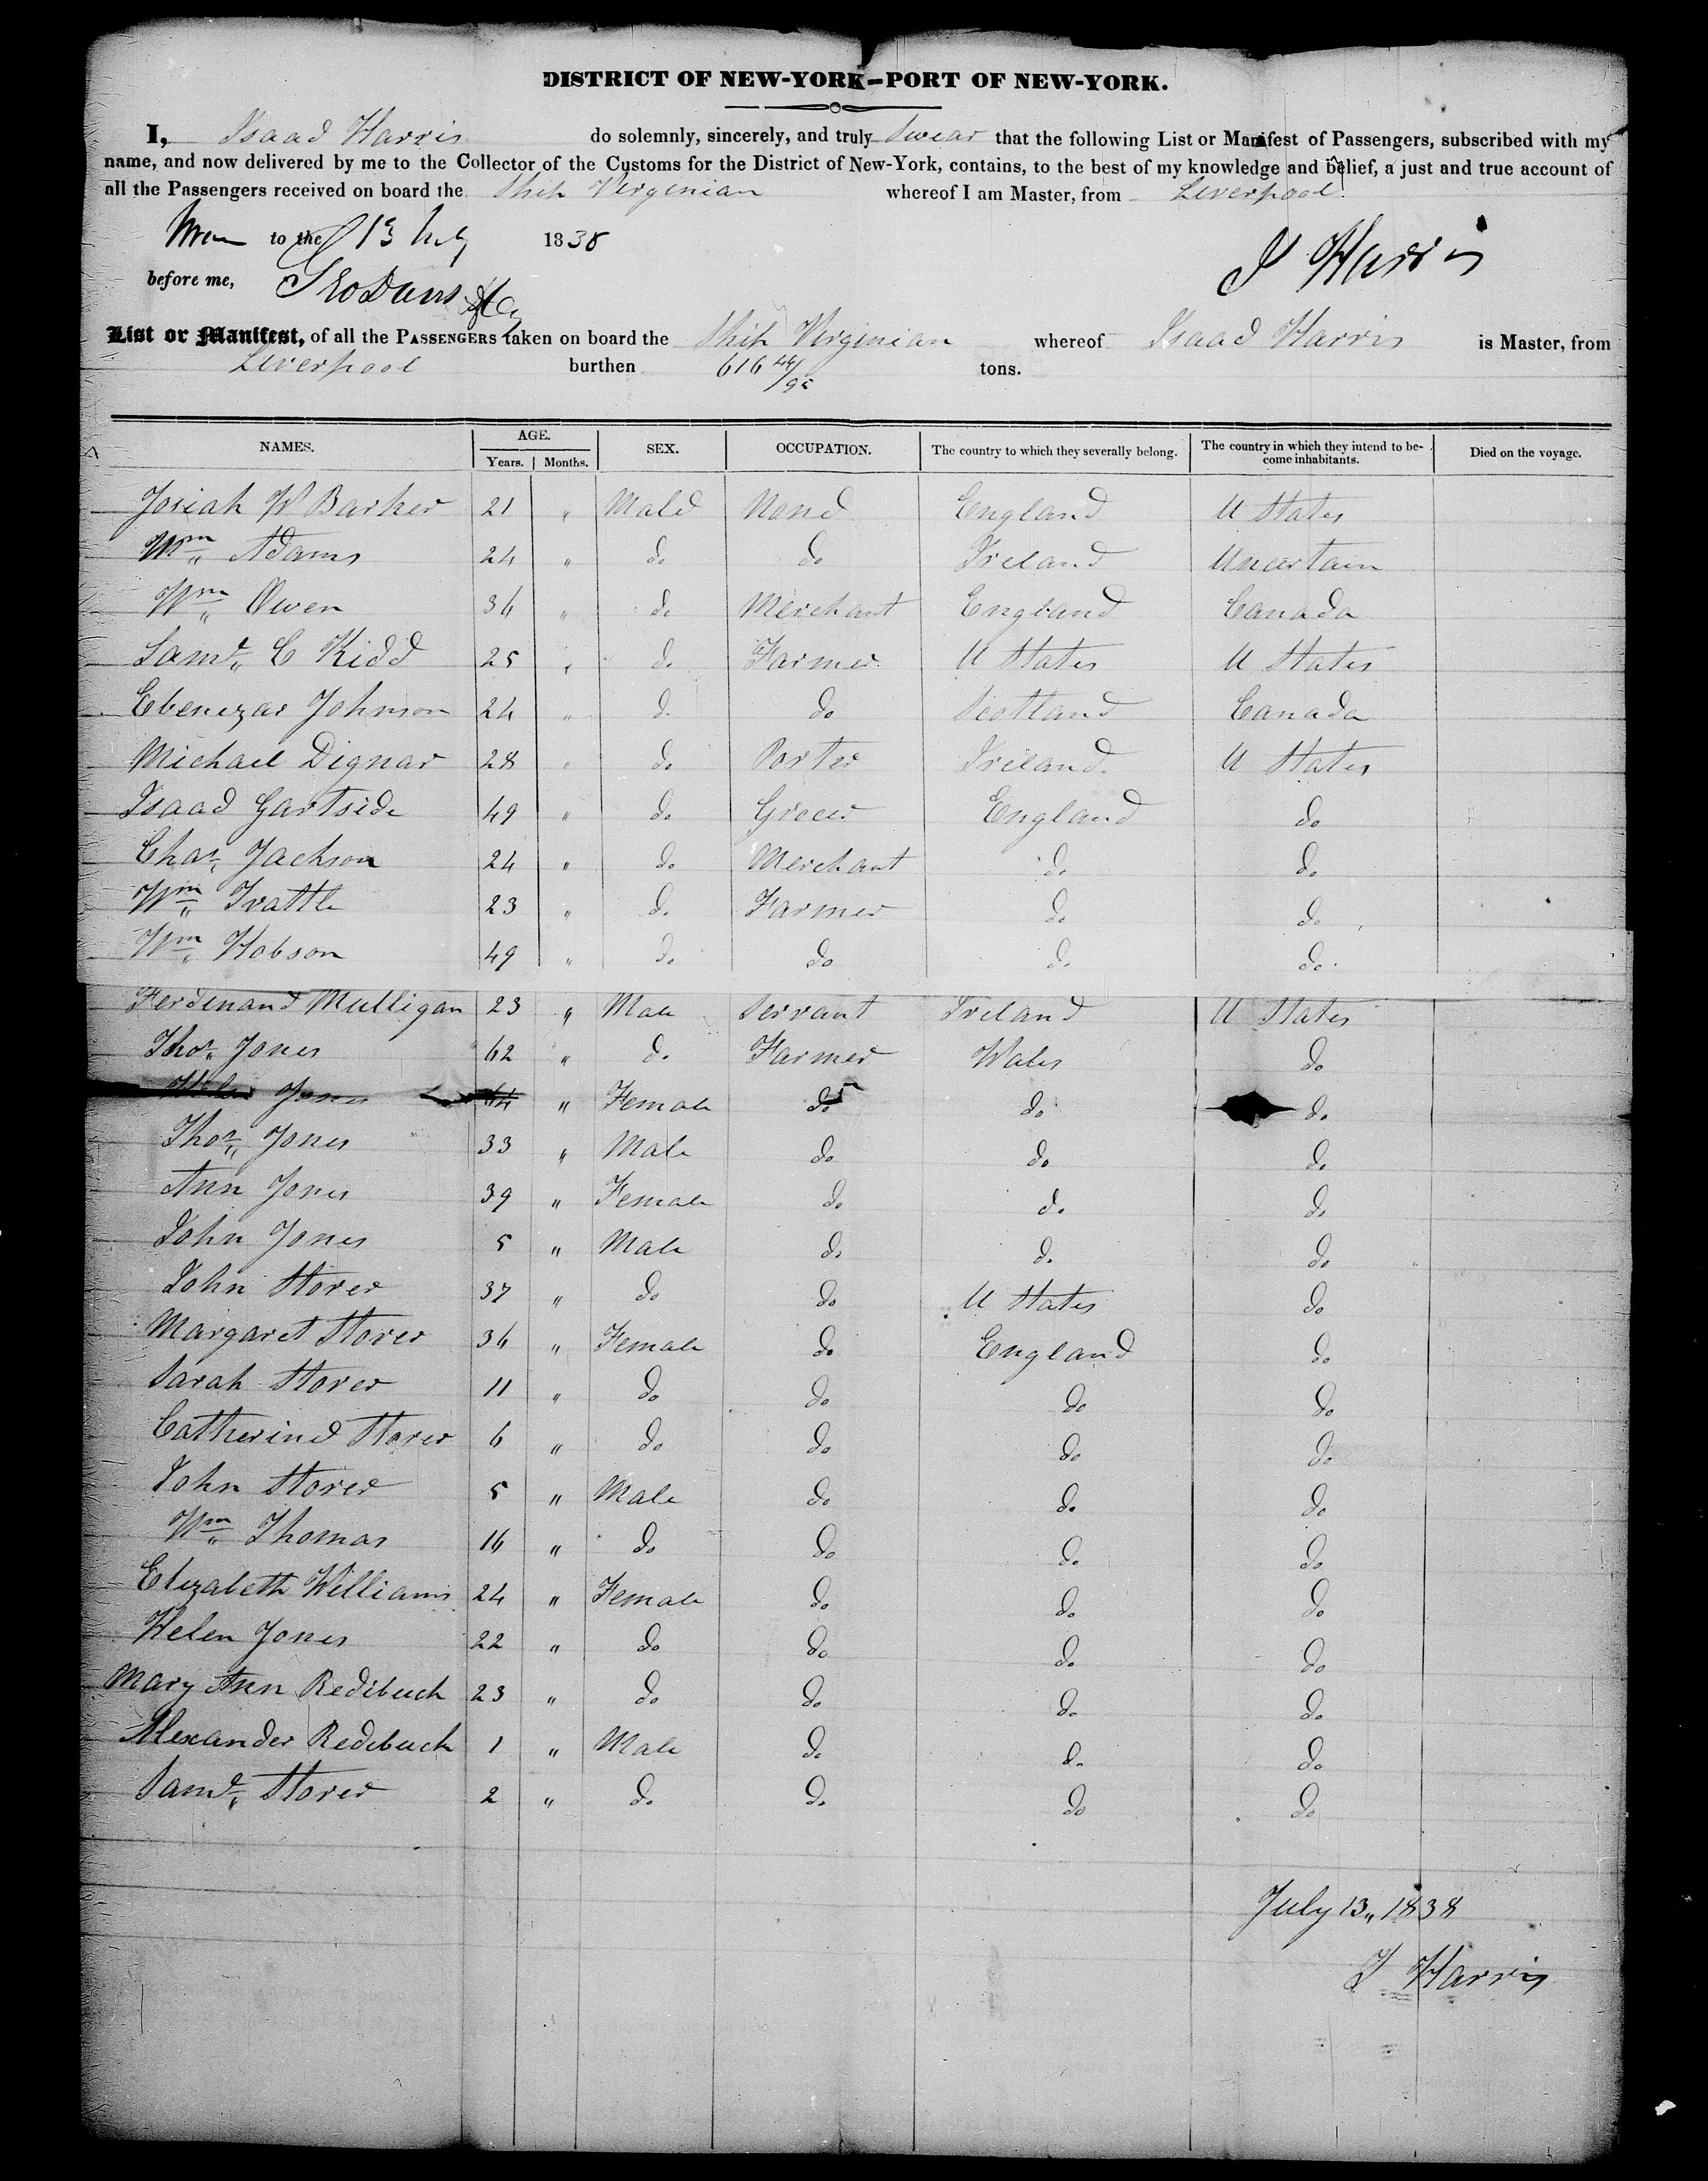 DISTRICT OF NEW-YORK—PORT OF NEW-YORK.
I, Isaac Harris do solemnly, sincerely, and truly Swear that the following List or Manifest of Passengers, subscribed with my
name, and now delivered by me to the Collector of the Customs for the District of New-York, contains, to the best of my knowledge and belief, a just and true account of
all the Passengers received on board the Ship Virginian whereof I am Master, from Liverpool
to the 13 July 1838
I Harris
before me,
List or Manifest, of all the PASSENGERS taken on board the Ship Virginian whereof Isaac Harris is Master, from
Liverpool burthen 616 44/95 tons.
NAMES. AGE. Years. Months. SEX. OCCUPATION. The country to which they severally belong. The country in which they intend to become inhabitants. Died on the voyage.
Josiah W Barker 21 " Male None England U States
Wm Adams 24 " do do Ireland Uncertain
Wm Owen 36 " do Merchant England Canada
Saml C Kidd 25 " do Farmer U States U States
Ebenezar Johnson 24 " do do Scotland Canada
Michael Dignar 28 " do Porter Ireland U States
Isaac Gartside 49 " do Grocer England do
Chas Jackson 24 " do Merchant do do
Wm Trattle 23 " do Farmer do do
Wm Hobson 49 " do do do do
Ferdinand Mulligan 23 " Male Servant Ireland U States
Thos Jones 62 " do Farmer Wales do
Jones 64 " Female do do do
Thos Jones 33 " Male do do do
Ann Jones 39 " Female do do do
John Jones 5 " Male do do do
John Storer 37 " do do U States do
Margaret Storer 36 " Female do England do
Sarah Storer 11 " do do do do
Catherine Storer 6 " do do do do
John Storer 5 " Male do do do
Wm Thomas 16 " do do do do
Elizabeth Williams 24 " Female do do do
Helen Jones 22 " do do do do
Mary Ann Redibuch 23 " do do do do
Alexander Redibuch 1 " Male do do do
Saml Storer 2 " do do do do
July 13, 1838
I Harris